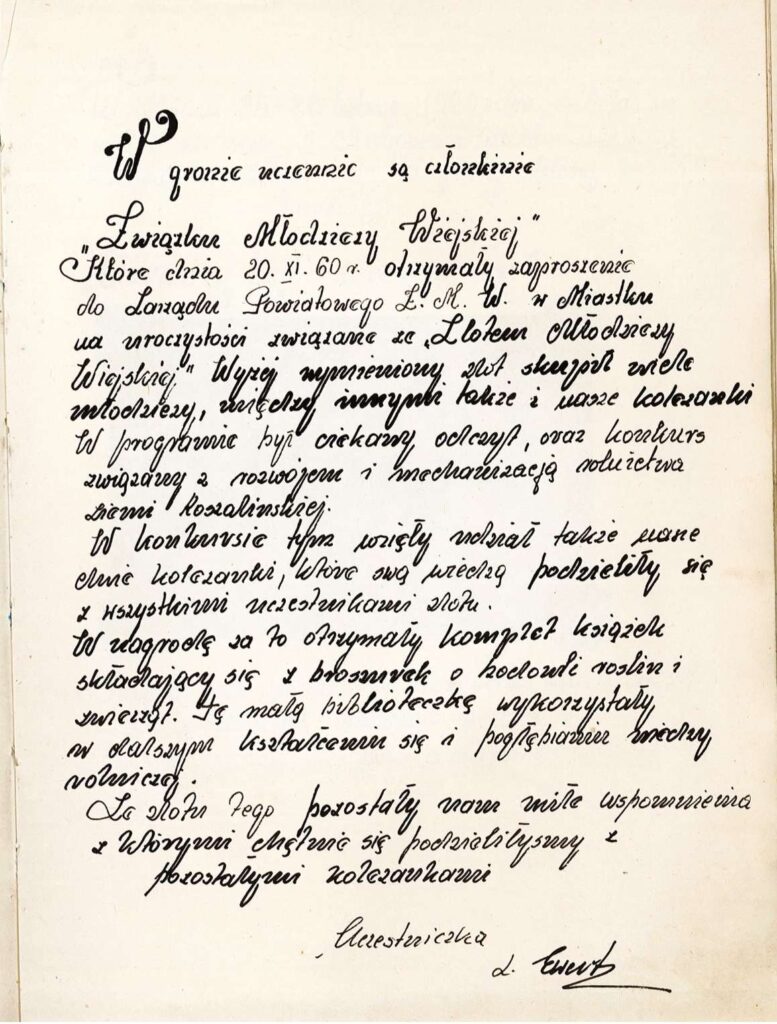 W gronie uczennic są członkinie
„Związku Młodzieży Wiejskiej"
Które dnia 20. XI. 60 r. otrzymały zaproszenie
do Zarządu Powiatowego Z. M. W. w Miastku
na uroczystości związane ze „Zlotem Młodzieży
Wiejskiej." Wyżej wymieniony zlot skupił wiele
młodzieży, między innymi także i nasze koleżanki
W programie był ciekawy odczyt, oraz konkurs
związany z rozwojem i mechanizacją rolnictwa
ziemi Koszalinskiej.
W konkursie tym wzięły udział także
dwie koleżanki, które swą wiedzą podzieliły się
z wszystkimi uczestnikami zlotu.
W nagrodę za to otrzymały komplet książek
składający się z broszurek o hodowli roslin i
zwierząt. Tę małą biblioteczkę wykorzystały
w dalszym kształceniu się i pogłębianiu wiedzy
rolniczej.
Ze zlotu tego pozostały nam miłe wspomnienia
z którymi chętnie się podzieliłysmy z
pozostałymi koleżankami
Uczestniczka
Ł. Ewert